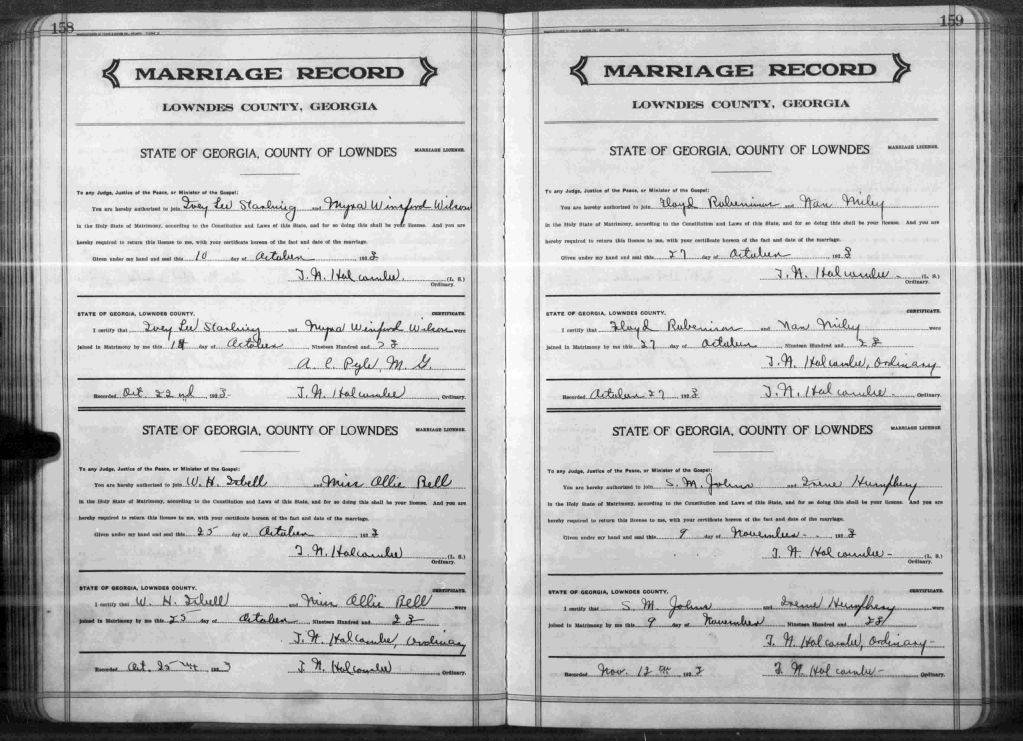 158
MARRIAGE RECORD
LOWNDES COUNTY, GEORGIA
STATE OF GEORGIA, COUNTY OF LOWNDES
MARRIAGE LICENSE.
To any Judge, Justice of the Peace, or Minister of the Gospel:
You are hereby authorized to join Ivey Lee and Myra Winiford Wilson
in the Holy State of Matrimony, according to the Constitution and Laws of this State, and for so doing this shall be your license. And you are
hereby required to return this license to me, with your certificate hereon of the fact and date of the marriage.
Given under my hand and seal this 10 day of October 192
T. N. Holcombe (L. S.)
Ordinary.
STATE OF GEORGIA, LOWNDES COUNTY.
CERTIFICATE.
I certify that Ivey Lee and Myra Winiford Wilson were
joined in Matrimony by me this day of October, Nineteen Hundred and
A. C. Pyle, M. G.
Recorded Oct. 22nd 192
T. N. Holcombe Ordinary.
STATE OF GEORGIA, COUNTY OF LOWNDES
MARRIAGE LICENSE.
To any Judge, Justice of the Peace, or Minister of the Gospel:
You are hereby authorized to join W. H. Isbell and Miss Allie Bell
in the Holy State of Matrimony, according to the Constitution and Laws of this State, and for so doing this shall be your license. And you are
hereby required to return this license to me, with your certificate hereon of the fact and date of the marriage.
Given under my hand and seal this 25 day of October 192
T. N. Holcombe (L. S.)
Ordinary.
STATE OF GEORGIA, LOWNDES COUNTY.
CERTIFICATE.
I certify that W. H. Isbell and Miss Allie Bell were
joined in Matrimony by me this 25 day of October, Nineteen Hundred and
T. N. Holcombe, Ordinary
Recorded Oct. 25 192
T. N. Holcombe Ordinary.
159
MARRIAGE RECORD
LOWNDES COUNTY, GEORGIA
STATE OF GEORGIA, COUNTY OF LOWNDES
MARRIAGE LICENSE.
To any Judge, Justice of the Peace, or Minister of the Gospel:
You are hereby authorized to join Floyd and Nan Miley
in the Holy State of Matrimony, according to the Constitution and Laws of this State, and for so doing this shall be your license. And you are
hereby required to return this license to me, with your certificate hereon of the fact and date of the marriage.
Given under my hand and seal this 27 day of October 192
T. N. Holcombe (L. S.)
Ordinary.
STATE OF GEORGIA, LOWNDES COUNTY.
CERTIFICATE.
I certify that Floyd and Nan Miley were
joined in Matrimony by me this 27 day of October, Nineteen Hundred and
T. N. Holcombe, Ordinary
Recorded October 27 192
T. N. Holcombe Ordinary.
STATE OF GEORGIA, COUNTY OF LOWNDES
MARRIAGE LICENSE.
To any Judge, Justice of the Peace, or Minister of the Gospel:
You are hereby authorized to join S. M. Johns and Irene Humphrey
in the Holy State of Matrimony, according to the Constitution and Laws of this State, and for so doing this shall be your license. And you are
hereby required to return this license to me, with your certificate hereon of the fact and date of the marriage.
Given under my hand and seal this 9 day of November 192
T. N. Holcombe (L. S.)
Ordinary.
STATE OF GEORGIA, LOWNDES COUNTY.
CERTIFICATE.
I certify that S. M. Johns and Irene Humphrey were
joined in Matrimony by me this 9 day of November Nineteen Hundred and
T. N. Holcombe, Ordinary
Recorded Nov. 12th 192
T. N. Holcombe Ordinary.